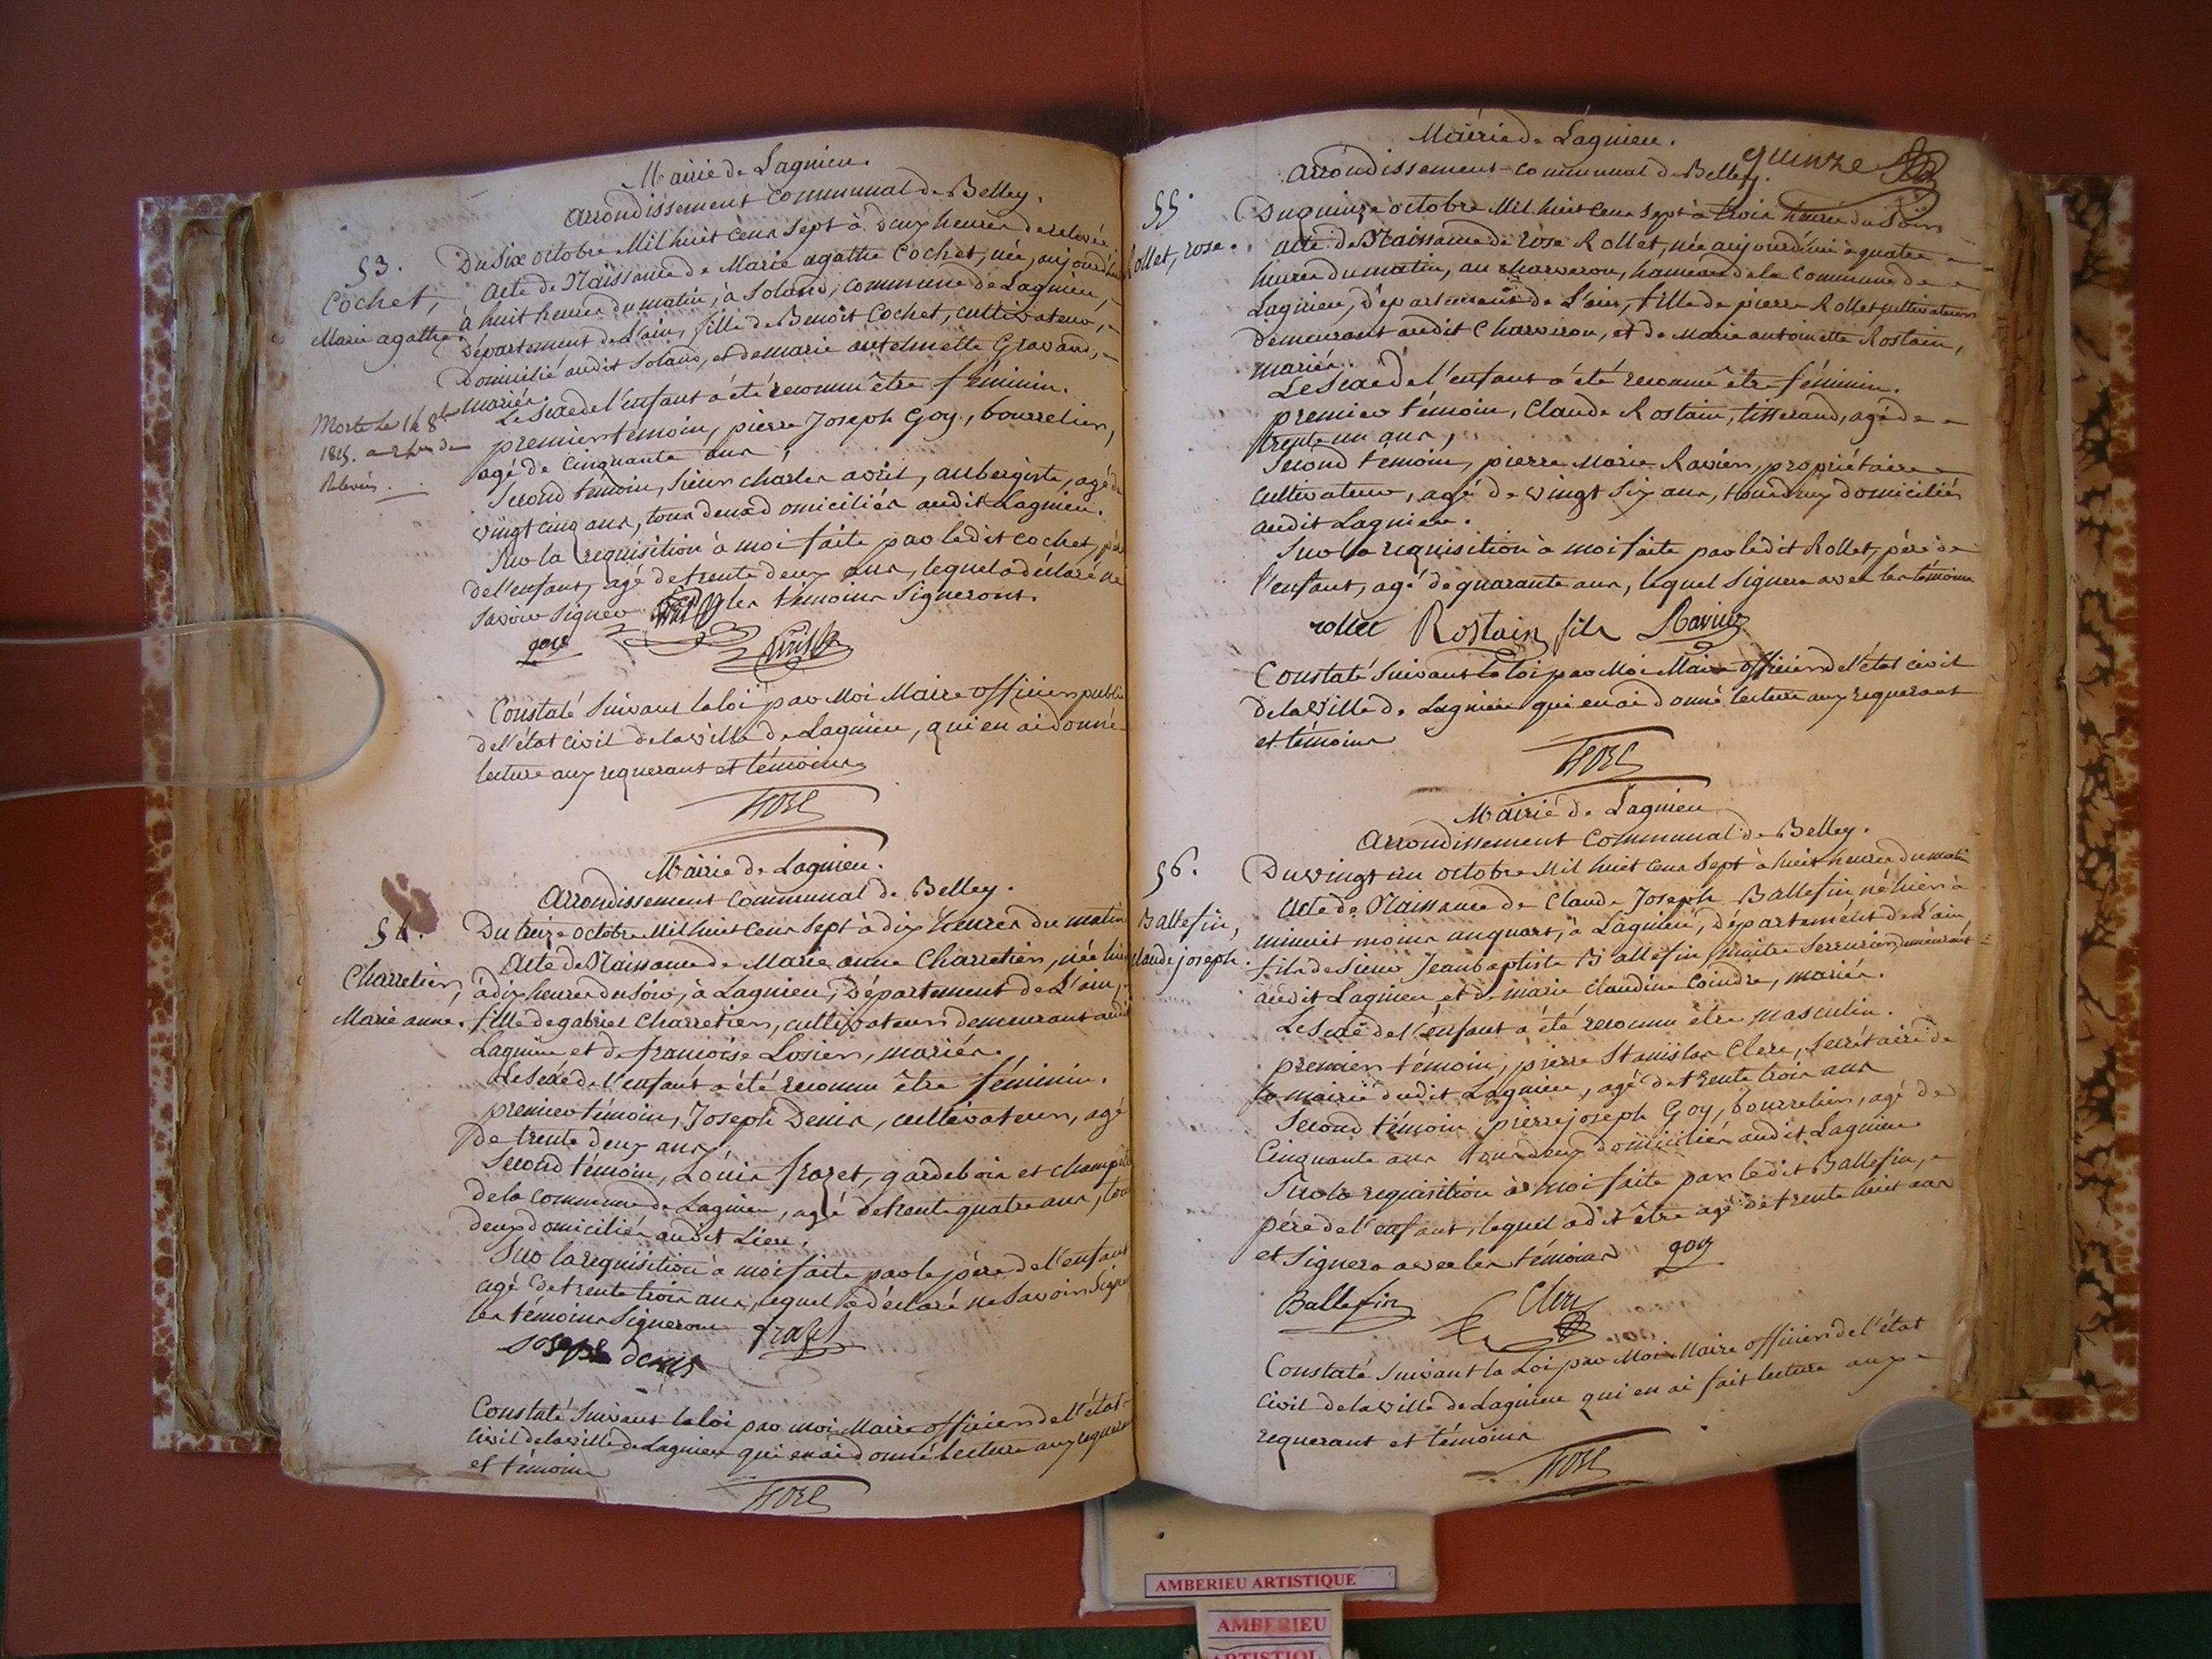 Mairie de Lagnieu.
arrondissement communal de Belley.
53.
Cochet,
Marie agathe.
Morte le 14 8bre
1815. a 2 hres de
Relevée.
Du six octobre Mil huit cens sept à deux heures de relevée.
Acte de Naissance de Marie agathe Cochet, née, aujourd'hui
à huit heures du matin, à Soland, commune de Lagnieu,
Département de L'ain, fille de Benoit Cochet, cultivateur,
Domicilié audit Soland, et de marie antelmette Gravand,
mariés.
Le Sexe de l'enfant a été reconnu être féminin.
premier témoin, pierre Joseph Goy, bourrelier,
agé de Cinquante ans,
Second témoin, Sieur charles avril, aubergiste, agé de
vingt cinq ans, tous deux domiciliés audit Lagnieu.
Sur la requisition à moi faite par ledit cochet, père
de l'enfant, agé de trente deux ans, lequel a déclaré ne
Savoir Signer les témoins Signeront.
goy
Constaté Suivant la loi par Moi Maire officier public
de l'état civil de la ville de Lagnieu, qui en ai donné
lecture aux requerant et témoins
Mairie de Lagnieu.
Arrondissement Communal de Belley.
54.
Charretier,
Marie anne.
Du treize octobre Mil huit Cens Sept à dix heures du matin
Acte de Naissance de Marie anne Charretier, née hier
à dix heures du Soir, à Lagnieu, Département de L'ain,
fille de gabriel Charretier, cultivateur demeurant audit
Lagnieu et de françoise Losier, mariés.
Le Sexe de l'enfant a été reconnu être féminin.
premier témoin, Joseph Denis, cultivateur, agé
de trente deux ans,
Second témoin, Louis frazet, garde bois et champêtre
de la commune de Lagnieu, agé de trente quatre ans, tous
deux domiciliés audit Lieu.
Sur la requisition à moi faite par le père de l'enfant
agé de trente trois ans, lequel a déclaré ne Savoir Signer
les témoins Signeront frazet
Joseph denis
Constaté Suivant la loi par moi Maire officier de l'état
Civil de la ville de Lagnieu qui en ai donné lecture aux requerant
et témoins
Mairie de Lagnieu.
quinze
Arrondissement communal de Belley.
55.
Rollet, rose.
Du quinze octobre Mil huit cens sept à trois heures du Soir
acte de Naissance de rose Rollet, née aujourd'hui à quatre
heures du matin, au charveron, hameau de la Commune de
Lagnieu, département de L'ain, fille de pierre Rollet cultivateur
Demeurant audit Charveron, et de Marie antoinette Rostain,
mariés.
Le Sexe de l'enfant a été reconnu être féminin.
premier témoin, Claude Rostain, tisserand, agé de
trente un ans,
Second témoin, pierre Marie Ravier, propriétaire
cultivateur, agé de vingt six ans, tous deux domiciliés
audit Lagnieu.
Sur la requisition à moi faite par ledit Rollet, père de
l'enfant, agé de quarante ans, lequel Signera avec les témoins
rollet Rostain fils Ravier
Constaté Suivant la loi par Moi Maire officier de l'état civil
de la Ville de Lagnieu qui en ai donné lecture aux requerant
et témoins
Mairie de Lagnieu
Arrondissement Communal de Belley.
56.
Ballefin,
Claude joseph.
Du vingt un octobre Mil huit cens Sept à huit heures du matin
Acte de Naissance de Claude Joseph Ballefin, né hier à
minuit moins un quart, à Lagnieu, département de L'ain,
fils de Sieur Jean baptiste Ballefin, maitre Serrurier, demeurant
audit Lagnieu et de marie claudine Coindre, mariés.
Le Sexe de l'enfant a été reconnu être Masculin.
premier témoin, pierre Stanislas Clerc, Secrétaire de
la mairie dudit Lagnieu, agé de trente trois ans
Second témoin, pierre joseph Goy, bourrelier, agé de
Cinquante ans tous deux domiciliés audit Lagnieu
Sur la requisition à moi faite par ledit Ballefin,
père de l'enfant, lequel a dit être agé de trente huit ans
et Signera avec les témoins goy
Ballefin Clerc
Constaté Suivant la Loi par Moi Maire officier de l'état
Civil de la ville de Lagnieu qui en ai fait lecture aux
requerant et témoins
AMBERIEU ARTISTIQUE
AMBERIEU